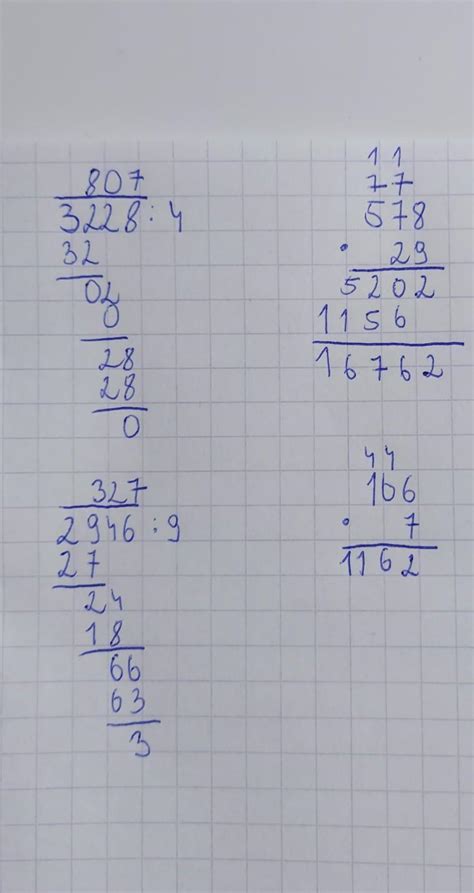 807
3228 : 4
32
02
0
28
28
0
11
77
578
· 29
5202
1156
16762
327
2946 : 9
27
24
18
66
63
3
44
166
· 7
1162